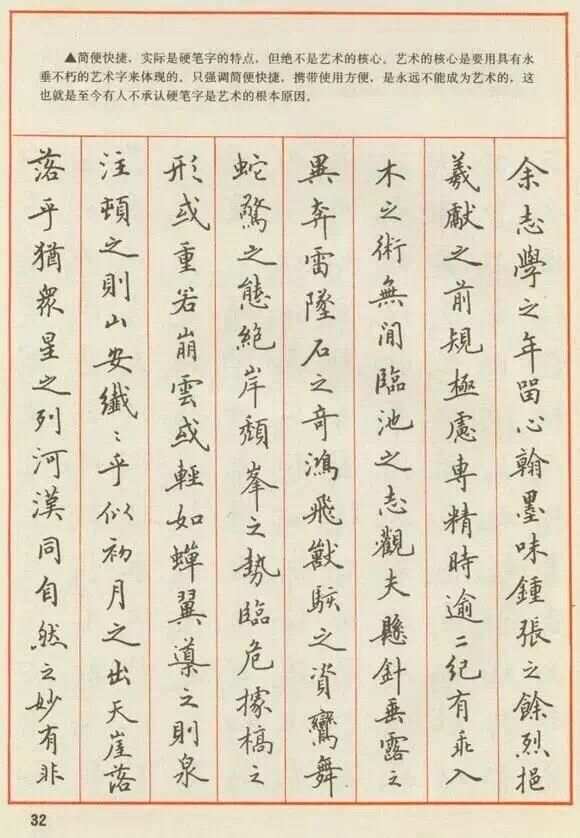 ▲简便快捷，实际是硬笔字的特点，但绝不是艺术的核心。艺术的核心是要用具有永
垂不朽的艺术字来体现的。只强调简便快捷，携带使用方便，是永远不能成为艺术的，这
也就是至今有人不承认硬笔字是艺术的根本原因。
余志學之年留心翰墨味鍾張之餘烈挹
羲獻之前規極慮専精時逾二紀有乖入
木之術無間臨池之志觀夫懸針垂露之
異奔雷墜石之奇鴻飛獸駭之資鸞舞
蛇驚之態絕岸頽峯之勢臨危據槁之
形或重若崩雲或輕如蟬翼導之則泉
注頓之則山安纖〻乎似初月之出天崖落
落乎猶衆星之列河漢同自然之妙有非
32